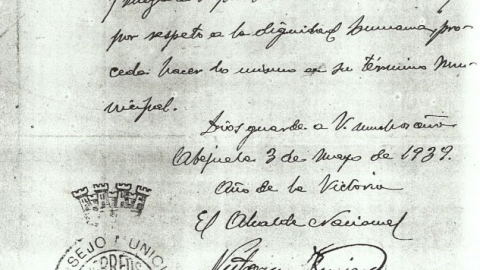 por respeto a la dignidad humana, pro-
ceda hacer lo mismo en su término mu-
nicipal.
Dios guarde a V. muchos años
Abejuela 3 de Mayo de 1939.
Año de la Victoria
El Alcalde Nacional